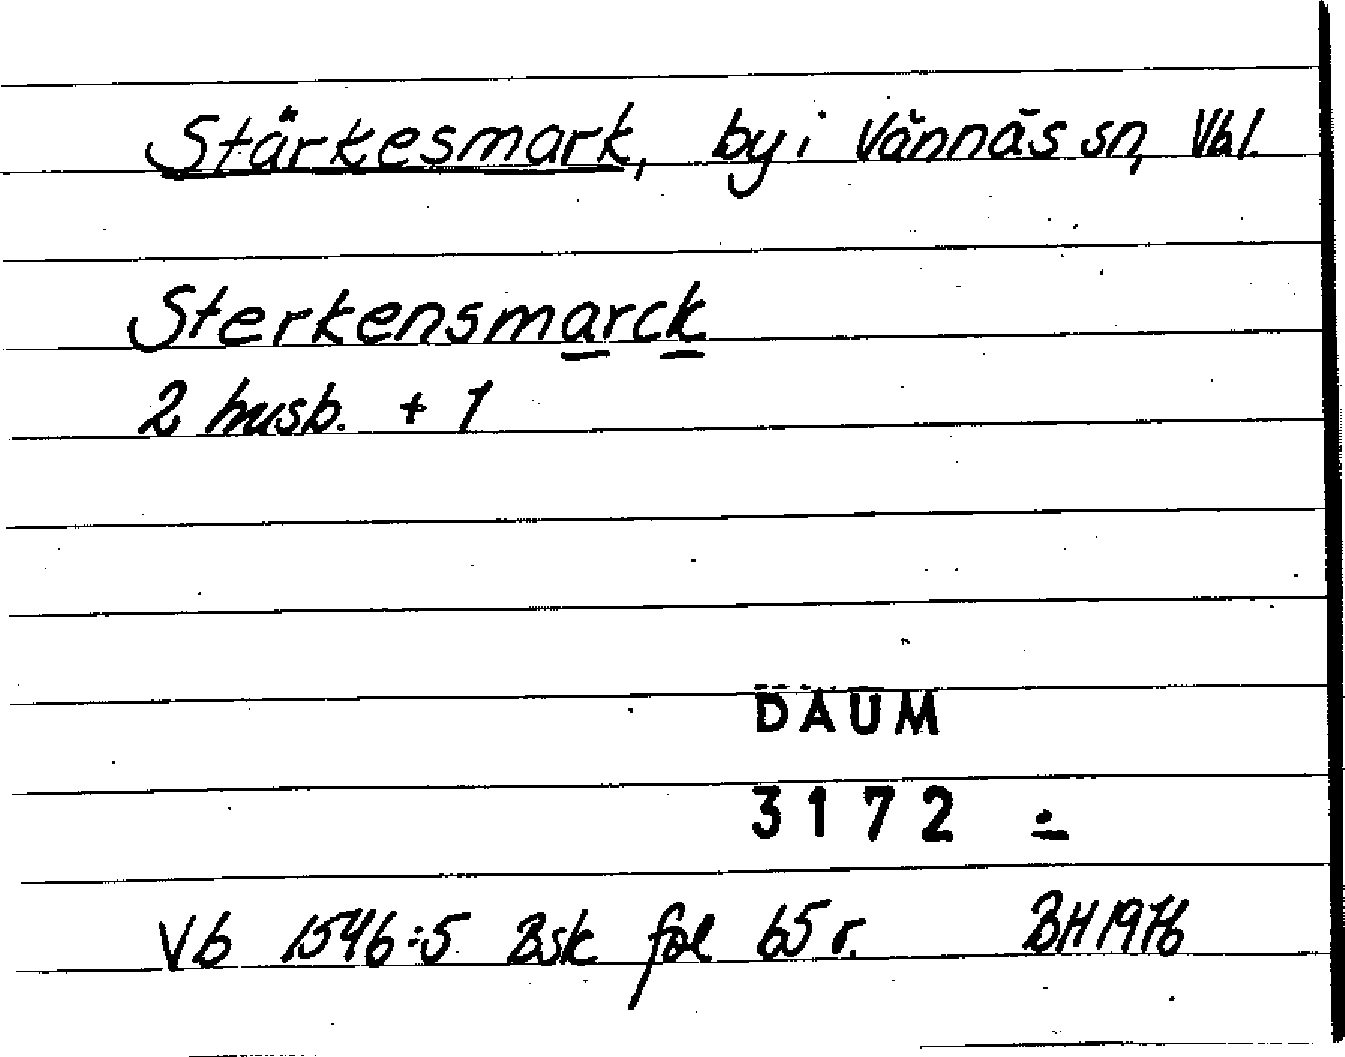 Stärkesmark, by i Vännäs sn, Vbl.
Sterkensmarck
2 husb. + 1
DAUM
3172
Vb 1546:5 Bsk fol 65 r. BH 1976